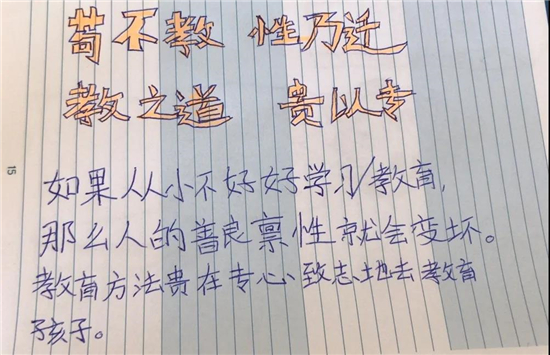 苟不教 性乃迁
教之道 贵以专
如果从小不好好学习/教育,
那么人的善良禀性就会变坏。
教育方法贵在专心致志地去教育
孩子。
15